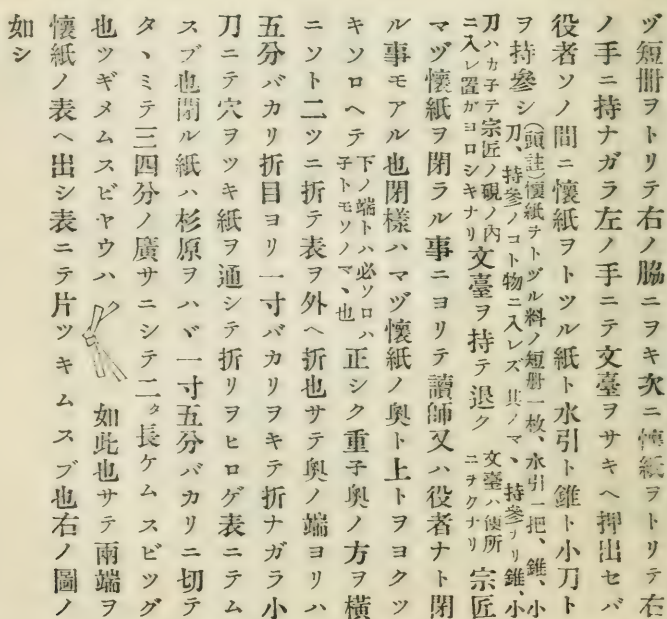 ヅ短冊ヲトリテ右ノ脇ニヲキ次ニ懷紙ヲトリテ右
ノ手ニ持ナガラ左ノ手ニテ文臺ヲサキヘ押出セバ
役者ソノ間ニ懷紙ヲトツル紙ト水引ト錐ト小刀ト
ヲ持參シ(頭註)懷紙ヲトヅル料ノ短冊一枚、水引一把、錐、小刀、持參ノコト物ニ入レズ其ノマヽ持參ナリ錐、小
刀ハカ子テ宗匠ノ硯ノ內ニ入レ置ガヨロシキナリ文臺ヲ持テ退ク文臺ハ便所ニヲクナリ宗匠
マヅ懷紙ヲ閉ラル事ニヨリテ讀師又ハ役者ナト閉
ル事モアル也閉樣ハマヅ懷紙ノ奧ト上トヲヨクツ
キソロヘテ下ノ端トハ必ソロハ子トモソノマヽ也正シク重子奧ノ方ヲ橫
ニソト二ツニ折テ表ヲ外ヘ折也サテ奧ノ端ヨリハ
五分バカリ折目ヨリ一寸バカリヲキテ折ナガラ小
刀ニテ穴ヲツキ紙ヲ通シテ折リヲヒロゲ表ニテム
スブ也閉ル紙ハ杉原ヲハヾ一寸五分バカリニ切テ
タヽミテ三四分ノ廣サニシテ二タ長ケムスビツグ
也ツギメムスビヤウハ如此也サテ兩端ヲ
懷紙ノ表ヘ出シ表ニテ片ツキムスブ也右ノ圖ノ
如シ